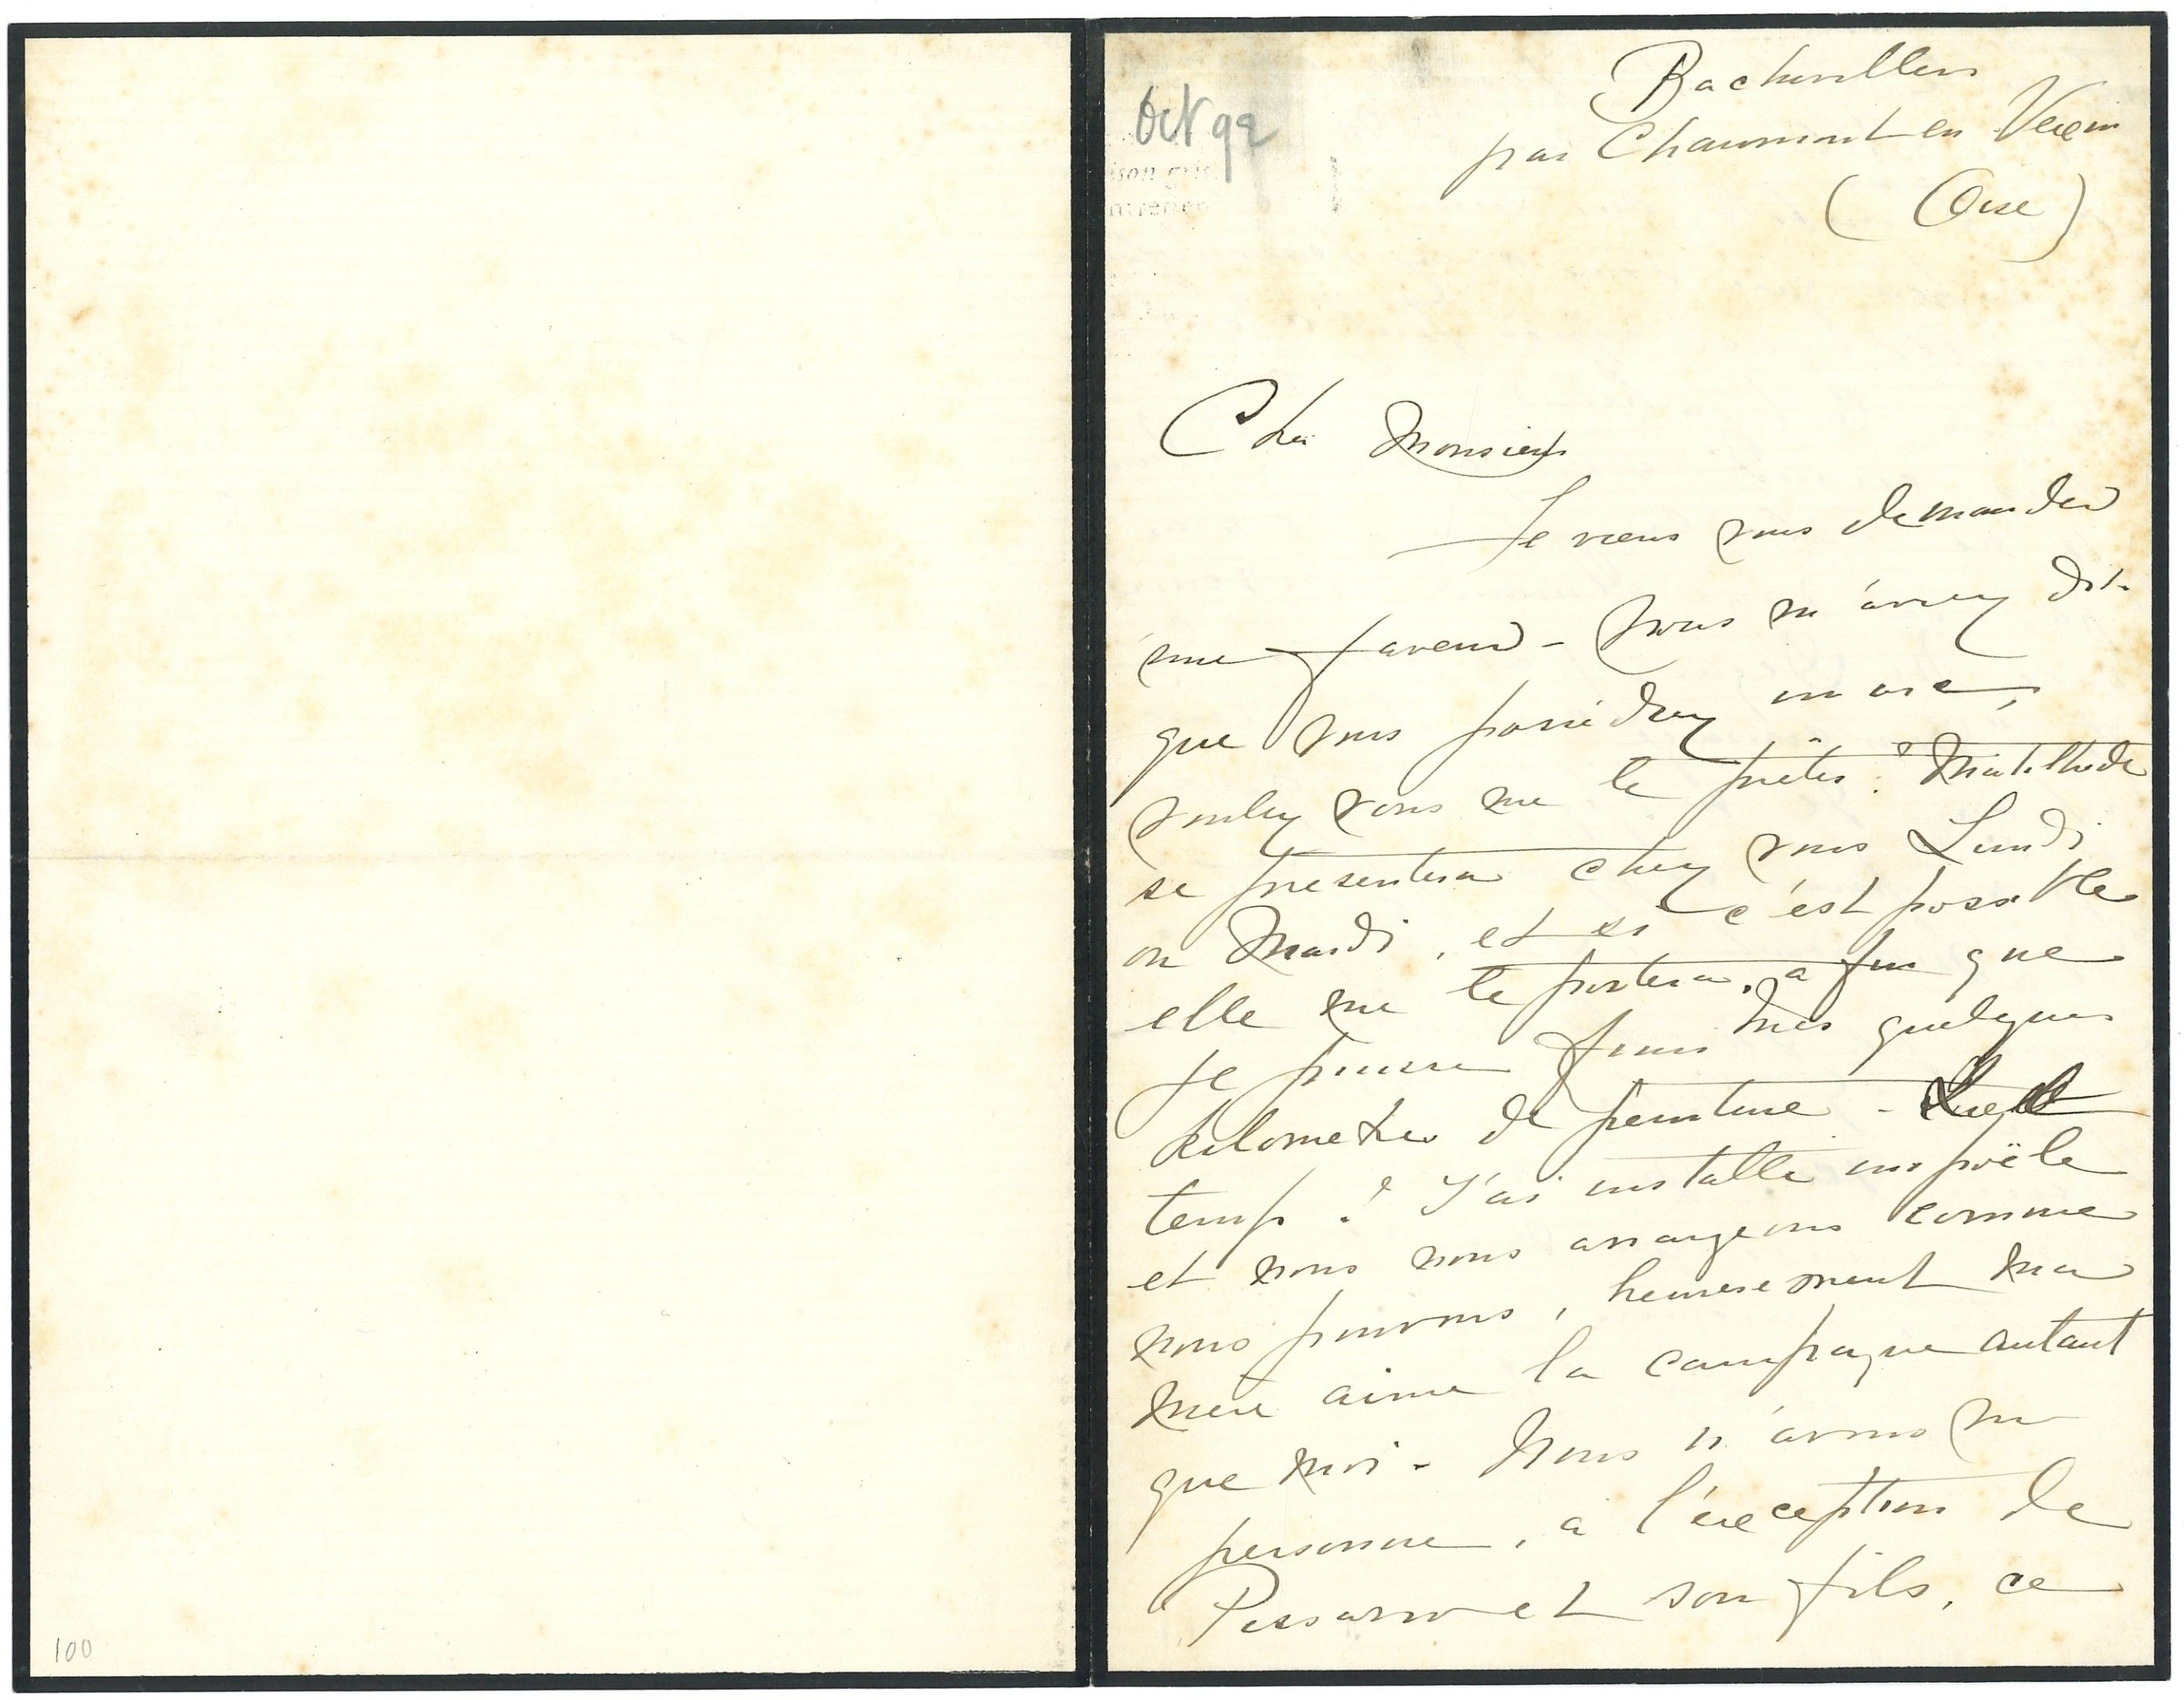 Oct 92
Bachivillers
par Chaumont en Vexin
(Oise)
Cher Monsieur
Je viens vous demander
une faveur - vous m'aviez dit
que vous possédiez un
voulez vous me le prêter? Mathilde
se presentera chez vous Lundi
ou Mardi, et si c'est possible
elle me le portera, afin que
je puisse finir mes quelques
kilometres de peinture - Quel
temps! J'ai installé un poële
et nous nous arrangeons comme
nous pouvons, heureusement ma
mère aime la campagne autant
que moi - Nous n'avons vu
personne, a l'exception de
Pissarro et son fils, ce
100